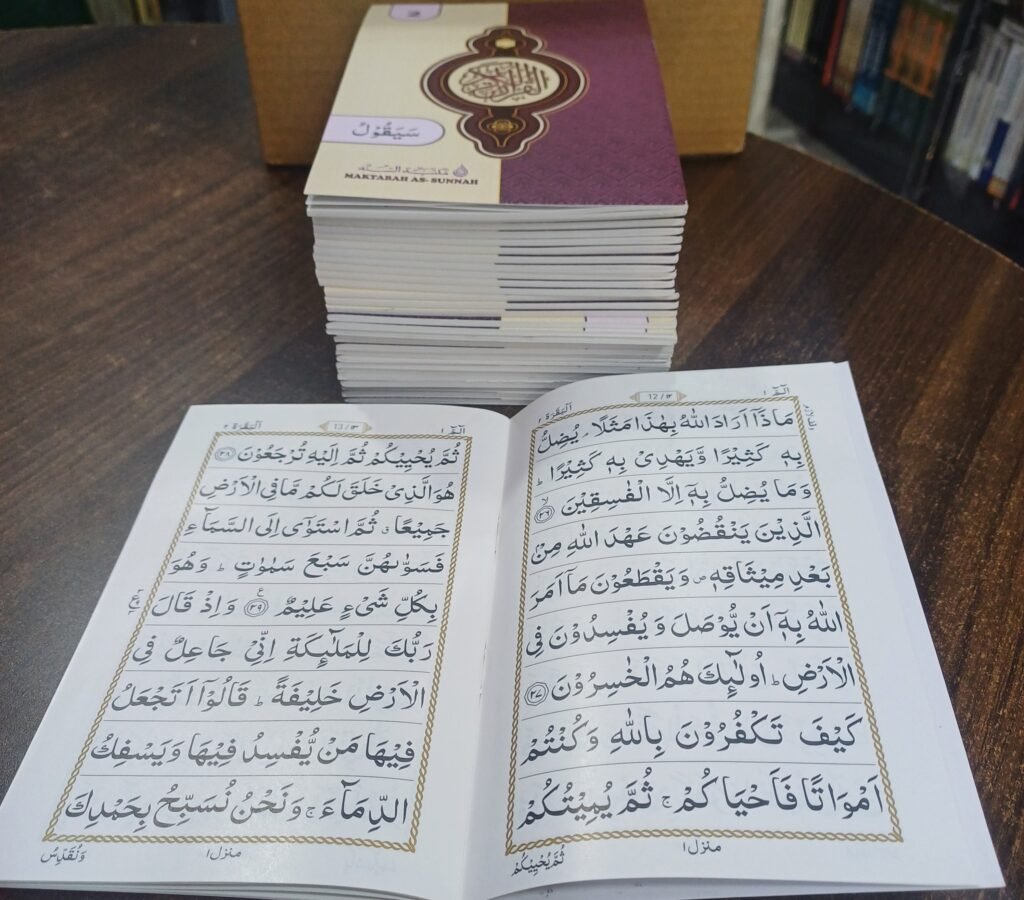 سَيَقُوْلُ
MAKTABAH AS-SUNNAH
الٓمّٓ ١
12/١٢
اَلْبَقَرَة ٢
مَاذَاۤ اَرَادَ اللّٰهُ بِهٰذَا مَثَلًا ۘ يُضِلُّ
بِهٖ كَثِيْرًا وَّيَهْدِىْ بِهٖ كَثِيْرًا ؕ
وَمَا يُضِلُّ بِهٖۤ اِلَّا الْفٰسِقِيْنَ ۙ﴿٢٦﴾
الَّذِيْنَ يَنْقُضُوْنَ عَهْدَ اللّٰهِ مِنْۢ
بَعْدِ مِيْثَاقِهٖ ۪ وَيَقْطَعُوْنَ مَاۤ اَمَرَ
اللّٰهُ بِهٖۤ اَنْ يُّوْصَلَ وَيُفْسِدُوْنَ فِى
الْاَرْضِ ؕ اُولٰٓئِكَ هُمُ الْخٰسِرُوْنَ ﴿٢٧﴾
كَيْفَ تَكْفُرُوْنَ بِاللّٰهِ وَكُنْتُمْ
اَمْوَاتًا فَاَحْيَاكُمْ ۚ ثُمَّ يُمِيْتُكُمْ
منزل ١
ثُمَّ يُحْيِيْكُمْ
الٓمّٓ ١
13/١٣
اَلْبَقَرَة ٢
ثُمَّ يُحْيِيْكُمْ ثُمَّ اِلَيْهِ تُرْجَعُوْنَ ﴿٢٨﴾
هُوَ الَّذِىْ خَلَقَ لَكُمْ مَّا فِى الْاَرْضِ
جَمِيْعًا ۗ ثُمَّ اسْتَوٰٓى اِلَى السَّمَآءِ
فَسَوّٰىهُنَّ سَبْعَ سَمٰوٰتٍ ؕ وَهُوَ
بِكُلِّ شَىْءٍ عَلِيْمٌ ﴿٢٩﴾ وَاِذْ قَالَ
رَبُّكَ لِلْمَلٰٓئِكَةِ اِنِّىْ جَاعِلٌ فِى
الْاَرْضِ خَلِيْفَةً ؕ قَالُوْۤا اَتَجْعَلُ
فِيْهَا مَنْ يُّفْسِدُ فِيْهَا وَيَسْفِكُ
الدِّمَآءَ ۚ وَنَحْنُ نُسَبِّحُ بِحَمْدِكَ
منزل ١
وَنُقَدِّسُ